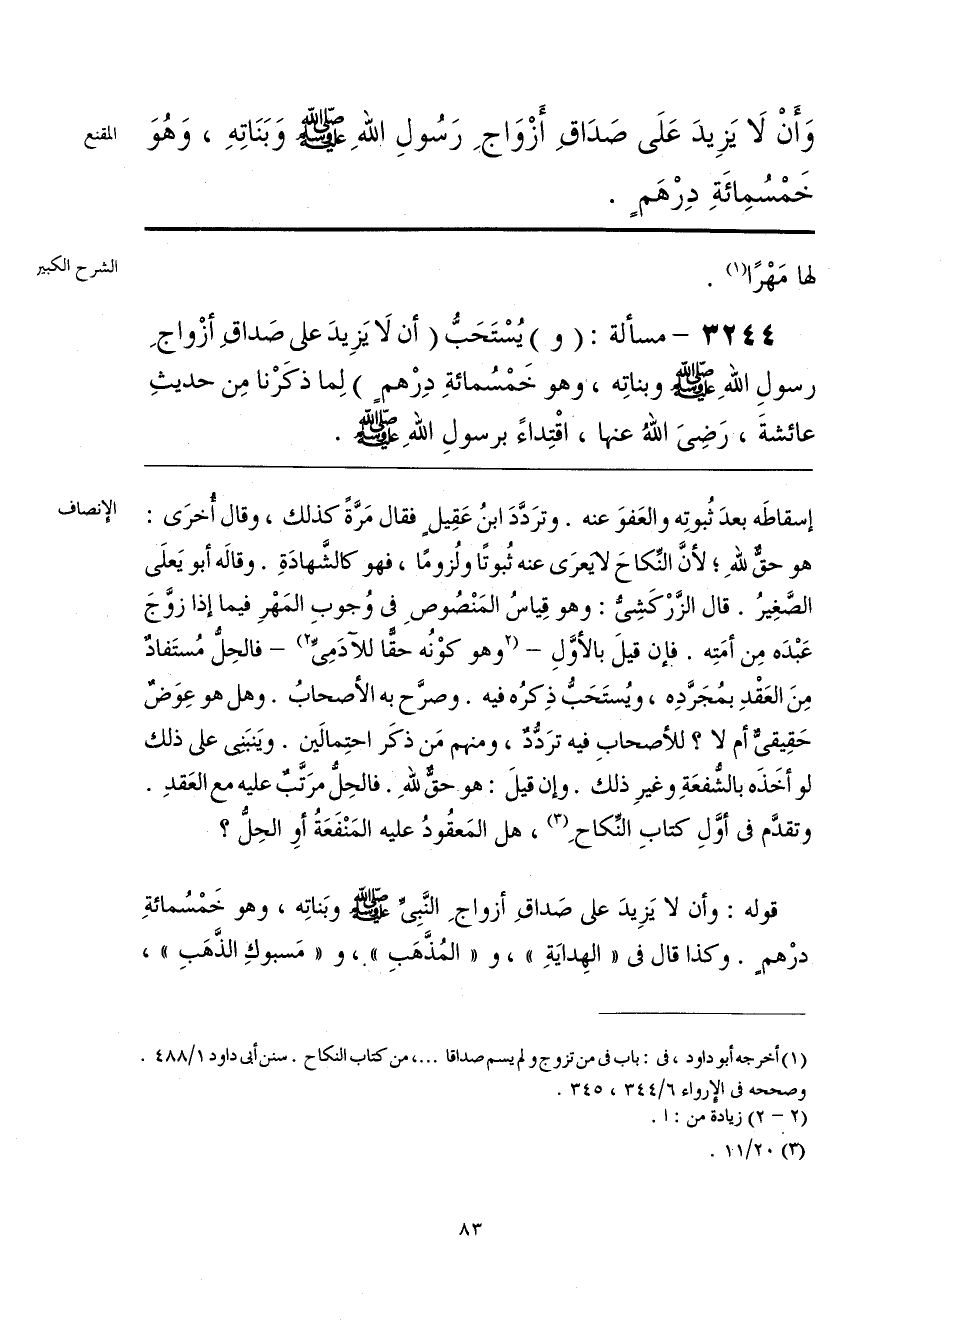 المقنع
وَأَنْ لَا يَزِيدَ عَلَى صَدَاقِ أَزْوَاجِ رَسُولِ اللهِ ﷺ وَبَنَاتِهِ ، وَهُوَ
خَمْسُمِائَةِ دِرْهَمٍ .
الشرح الكبير
لها مَهْرًا(١) .
٣٢٤٤ – مسألة : ( و ) يُسْتَحَبُّ ( أن لَا يَزِيدَ على صَداقِ أزْواجِ
رسولِ اللهِ ﷺ وبناتِه ، وهو خَمْسُمائةِ دِرْهمٍ ) لِما ذكَرْنا مِن حديثِ
عائشةَ ، رَضِىَ اللهُ عنها ، اقْتِداءً برسولِ اللهِ ﷺ .
الإنصاف
إسقاطَه بعدَ ثُبوتِه والعَفوَ عنه . وتردَّدَ ابنُ عَقِيلٍ فقال مَرَّةً كذلك ، وقال أُخرَى :
هو حقٌّ للهِ ؛ لأنَّ النِّكاحَ لايَعرَى عنه ثُبوتًا ولُزومًا ، فهو كالشَّهادَةِ . وقالَه أبو يَعلَى
الصَّغِيرُ . قال الزَّرْكَشِىُّ : وهو قِياسُ المَنْصُوصِ فى وُجوبِ المَهْرِ فيما إذا زوَّجَ
عَبْدَه مِن أمَتِه . فإن قيلَ بالأوَّلِ – (٢وهو كوْنُه حقًّا للآدَمِىِّ٢) – فالحِلُّ مُستَفادٌ
مِنَ العَقْدِ بمُجَرَّدِه ، ويُستَحَبُّ ذِكرُه فيه . وصرَّح به الأصحابُ . وهل هو عِوَضٌ
حَقِيقىٌّ أم لا ؟ للأصحابِ فيه تردُّدٌ ، ومنهم مَن ذكَر احتِمالَين . ويَنبَنِى على ذلك
لو أخَذَه بالشُّفعَةِ وغيرِ ذلك . وإن قيلَ : هو حقٌّ للهِ . فالحِلُّ مرَتَّبٌ عليه مع العَقدِ .
وتقدَّم فى أوَّلِ كتابِ النِّكاحِ(٣) ، هل المَعقُودُ عليه المَنْفَعَةُ أوِ الحِلُّ ؟
قوله : وأن لا يَزِيدَ على صَداقِ أزواجِ النَّبِىِّ ﷺ وبَناتِه ، وهو خَمْسُمائةِ
درْهمٍ . وكذا قال فى « الهِدايَةِ » ، و « المُذَّهَبِ » ، و « مَسبوكِ الذَّهَبِ » ،
(١) أخرجه أبو داود ، فى : باب فى من تزوج ولم يسم صداقا ...، من كتاب النكاح . سنن أبى داود ٤٨٨/١ .
وصححه فى الإرواء ٣٤٤/٦ ، ٣٤٥ .
(٢ – ٢) زيادة من : ا .
(٣) ١١/٢٠ .
٨٣